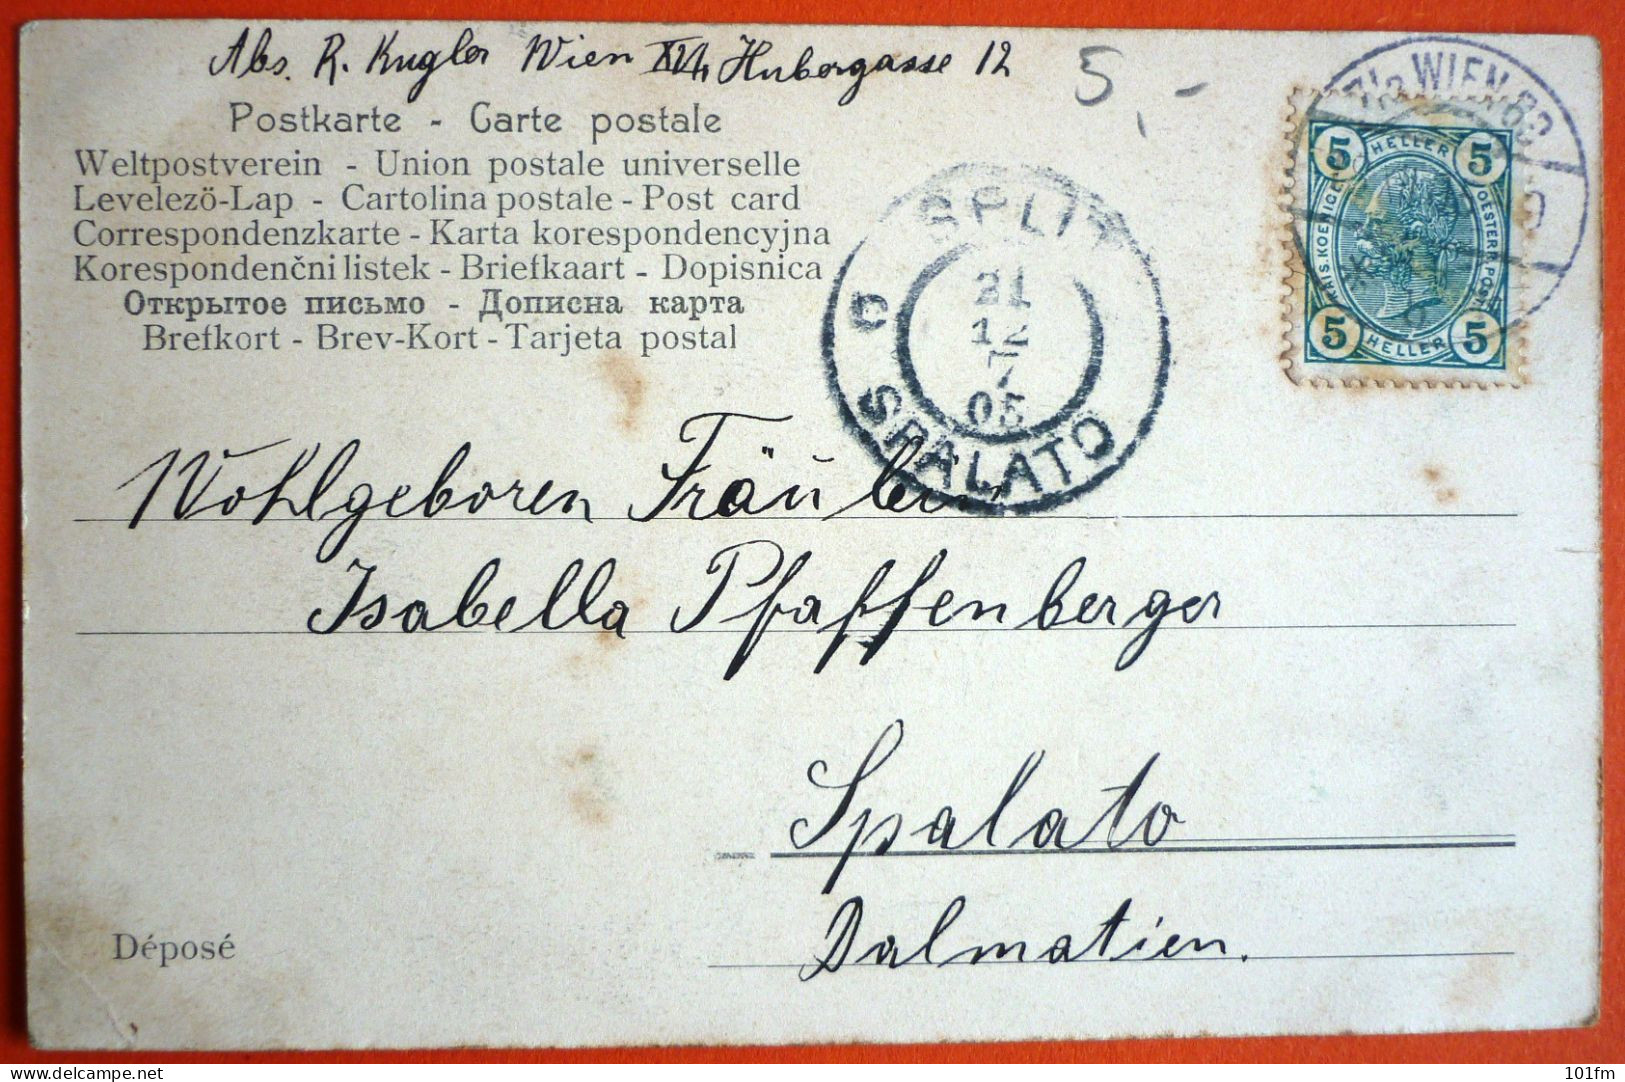 Abs. R. Kugler Wien XVI, Hubergasse 12
5,-
Postkarte - Carte postale
Weltpostverein - Union postale universelle
Levelezö-Lap - Cartolina postale - Post card
Correspondenzkarte - Karta korespondencyjna
Korespondenčni listek - Briefkaart - Dopisnica
Открытое письмо - Дописна карта
Brefkort - Brev-Kort - Tarjeta postal
WIEN
5 HELLER 5
KAIS. KOENIGL. OESTERR. POST
5 HELLER 5
SPLIT
21
12
7
05
SPALATO
Wohlgeboren Fräulein
Isabella Pfaffenberger
Spalato
Dalmatien.
Déposé
101fm